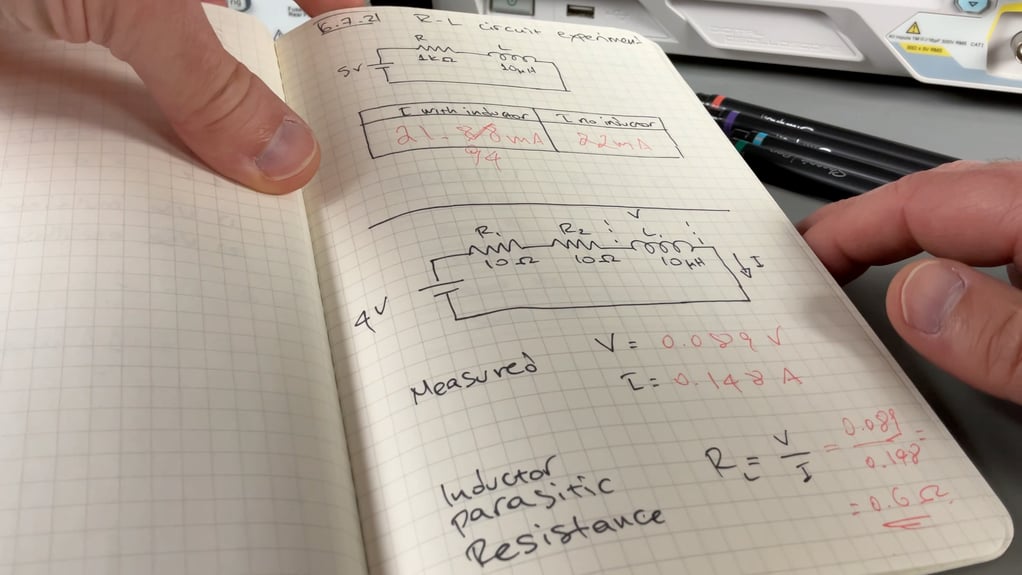 6.7.21 R-L circuit experiment
R L
5V 1kΩ 10μH
I with inductor I no inductor
21.88mA 22mA
94
V
R₁ R₂ L₁
10Ω 10Ω 10μH I
4V
Measured V = 0.089 V
I = 0.148 A
Inductor parasitic Resistance
R_L = V/I = 0.089/0.148 =
= 0.6 Ω